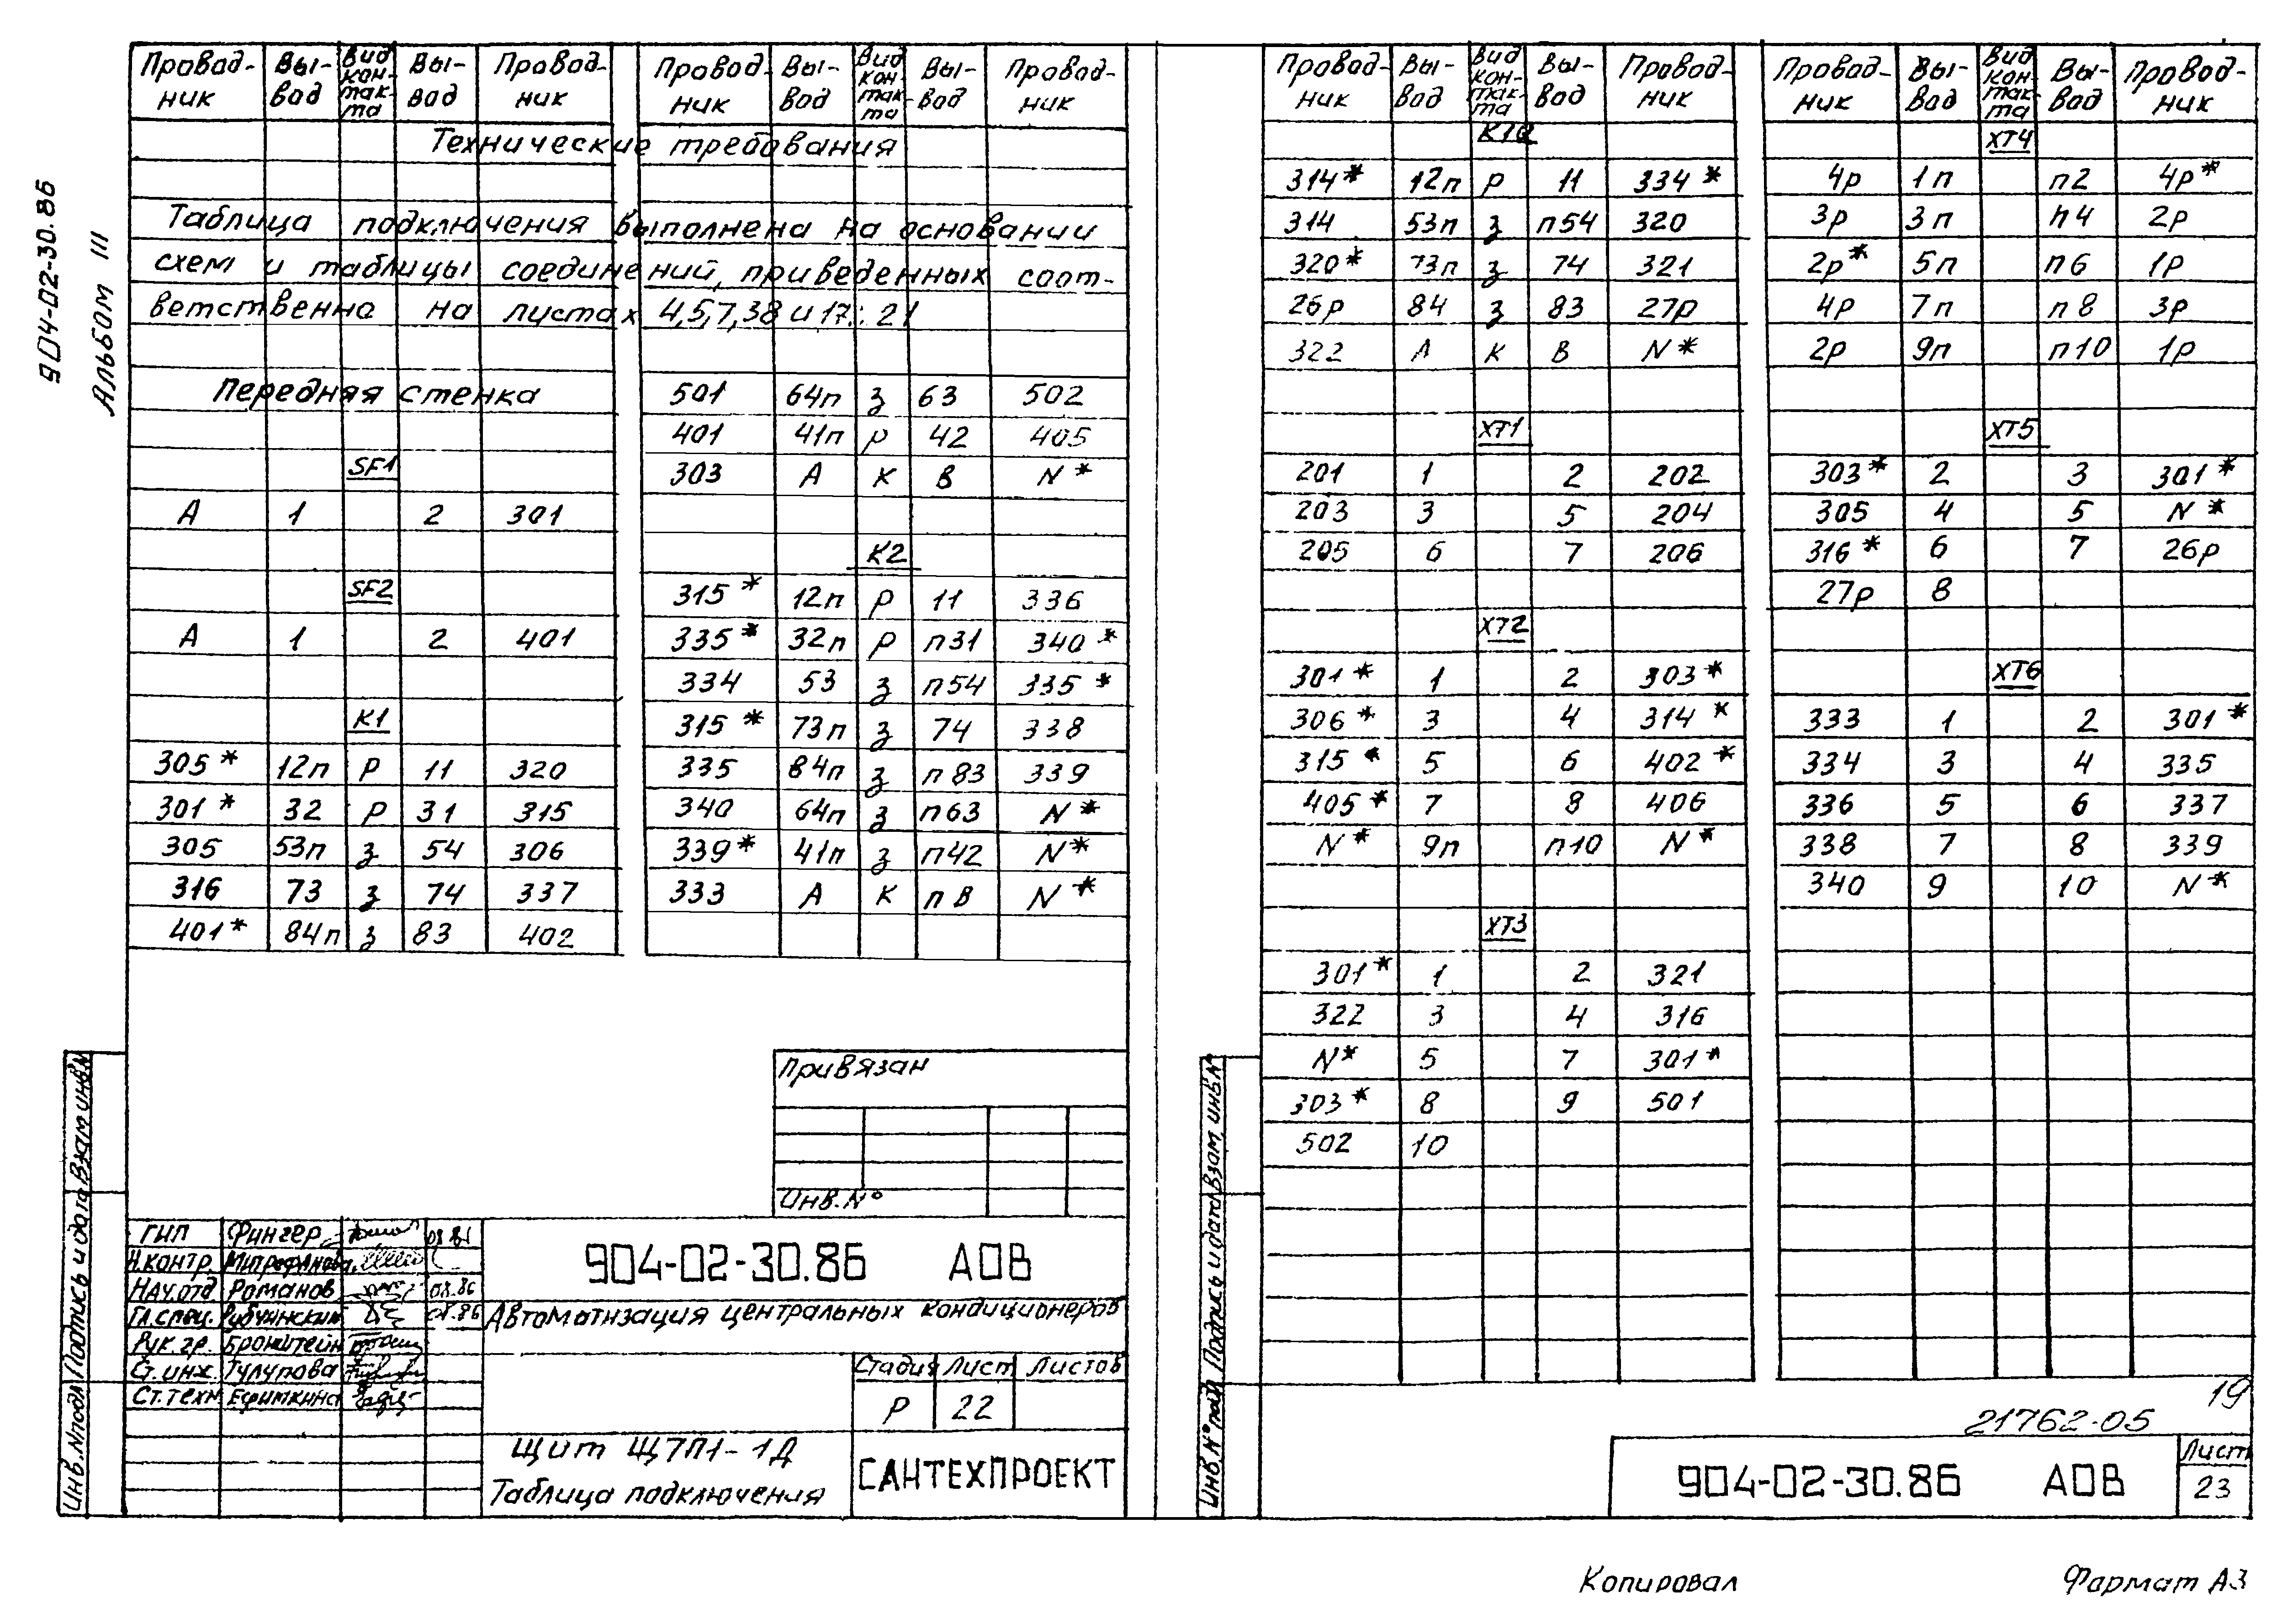 904-02-30.86
Альбом III
Провод- Вы- Вид Вы- Провод-
ник вод кон- вод ник
так-
та
Провод- Вы- Вид Вы- Провод-
ник вод кон- вод ник
так-
та
Технические требования
Таблица подключения выполнена на основании
схем и таблицы соединений, приведенных соот-
ветственно на листах 4,5,7,38 и 17÷21
Передняя стенка
SF1
А 1 2 301
SF2
А 1 2 401
К1
305* 12п р 11 320
301* 32 р 31 315
305 53п з 54 306
316 73 з 74 337
401* 84п з 83 402
501 64п з 63 502
401 41п р 42 405
303 А К В N*
К2
315* 12п р 11 336
335* 32п р п31 340*
334 53 з п54 335*
315* 73п з 74 338
335 84п з п83 339
340 64п з п63 N*
339* 41п з п42 N*
333 А К пВ N*
Привязан
Инв.№
ГИП Фингер
Н.контр. Митрофанова
Нач.отд Романов 08.86
Гл.спец. Рубчинский 08.86
Рук.гр. Бронштейн
Ст.инж. Тулупова
Ст.техн. Ефимкина
904-02-30.86 АОВ
Автоматизация центральных кондиционеров
Стадия Лист Листов
Р 22
Щит Щ7П1-1Д
Таблица подключения
САНТЕХПРОЕКТ
Инв.№подл Подпись и дата Взам.инв.№
Провод- Вы- Вид Вы- Провод-
ник вод кон- вод ник
так-
та
Провод- Вы- Вид Вы- Провод-
ник вод кон- вод ник
так-
та
314* 12п р 11 334*
314 53п з п54 320
320* 73п з 74 321
26р 84 з 83 27р
322 А К В N*
ХТ1
201 1 2 202
203 3 5 204
205 6 7 206
ХТ2
301* 1 2 303*
306* 3 4 314*
315* 5 6 402*
405* 7 8 406
N* 9п п10 N*
ХТ3
301* 1 2 321
322 3 4 316
N* 5 7 301*
303* 8 9 501
502 10
ХТ4
4р 1п п2 4р*
3р 3п п4 2р
2р* 5п п6 1р
4р 7п п8 3р
2р 9п п10 1р
ХТ5
303* 2 3 301*
305 4 5 N*
316* 6 7 26р
27р 8
ХТ6
333 1 2 301*
334 3 4 335
336 5 6 337
338 7 8 339
340 9 10 N*
Инв.№подл Подпись и дата Взам.инв.№
19
21762-05
904-02-30.86 АОВ
Лист
23
Копировал Формат А3